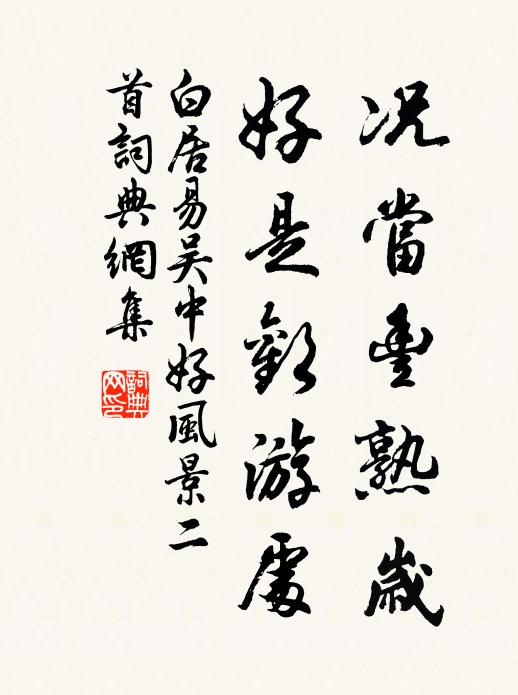 况當豊熟歲
好是歡游處
白居易吴中好風景二
首詞典網集
詞典
网印